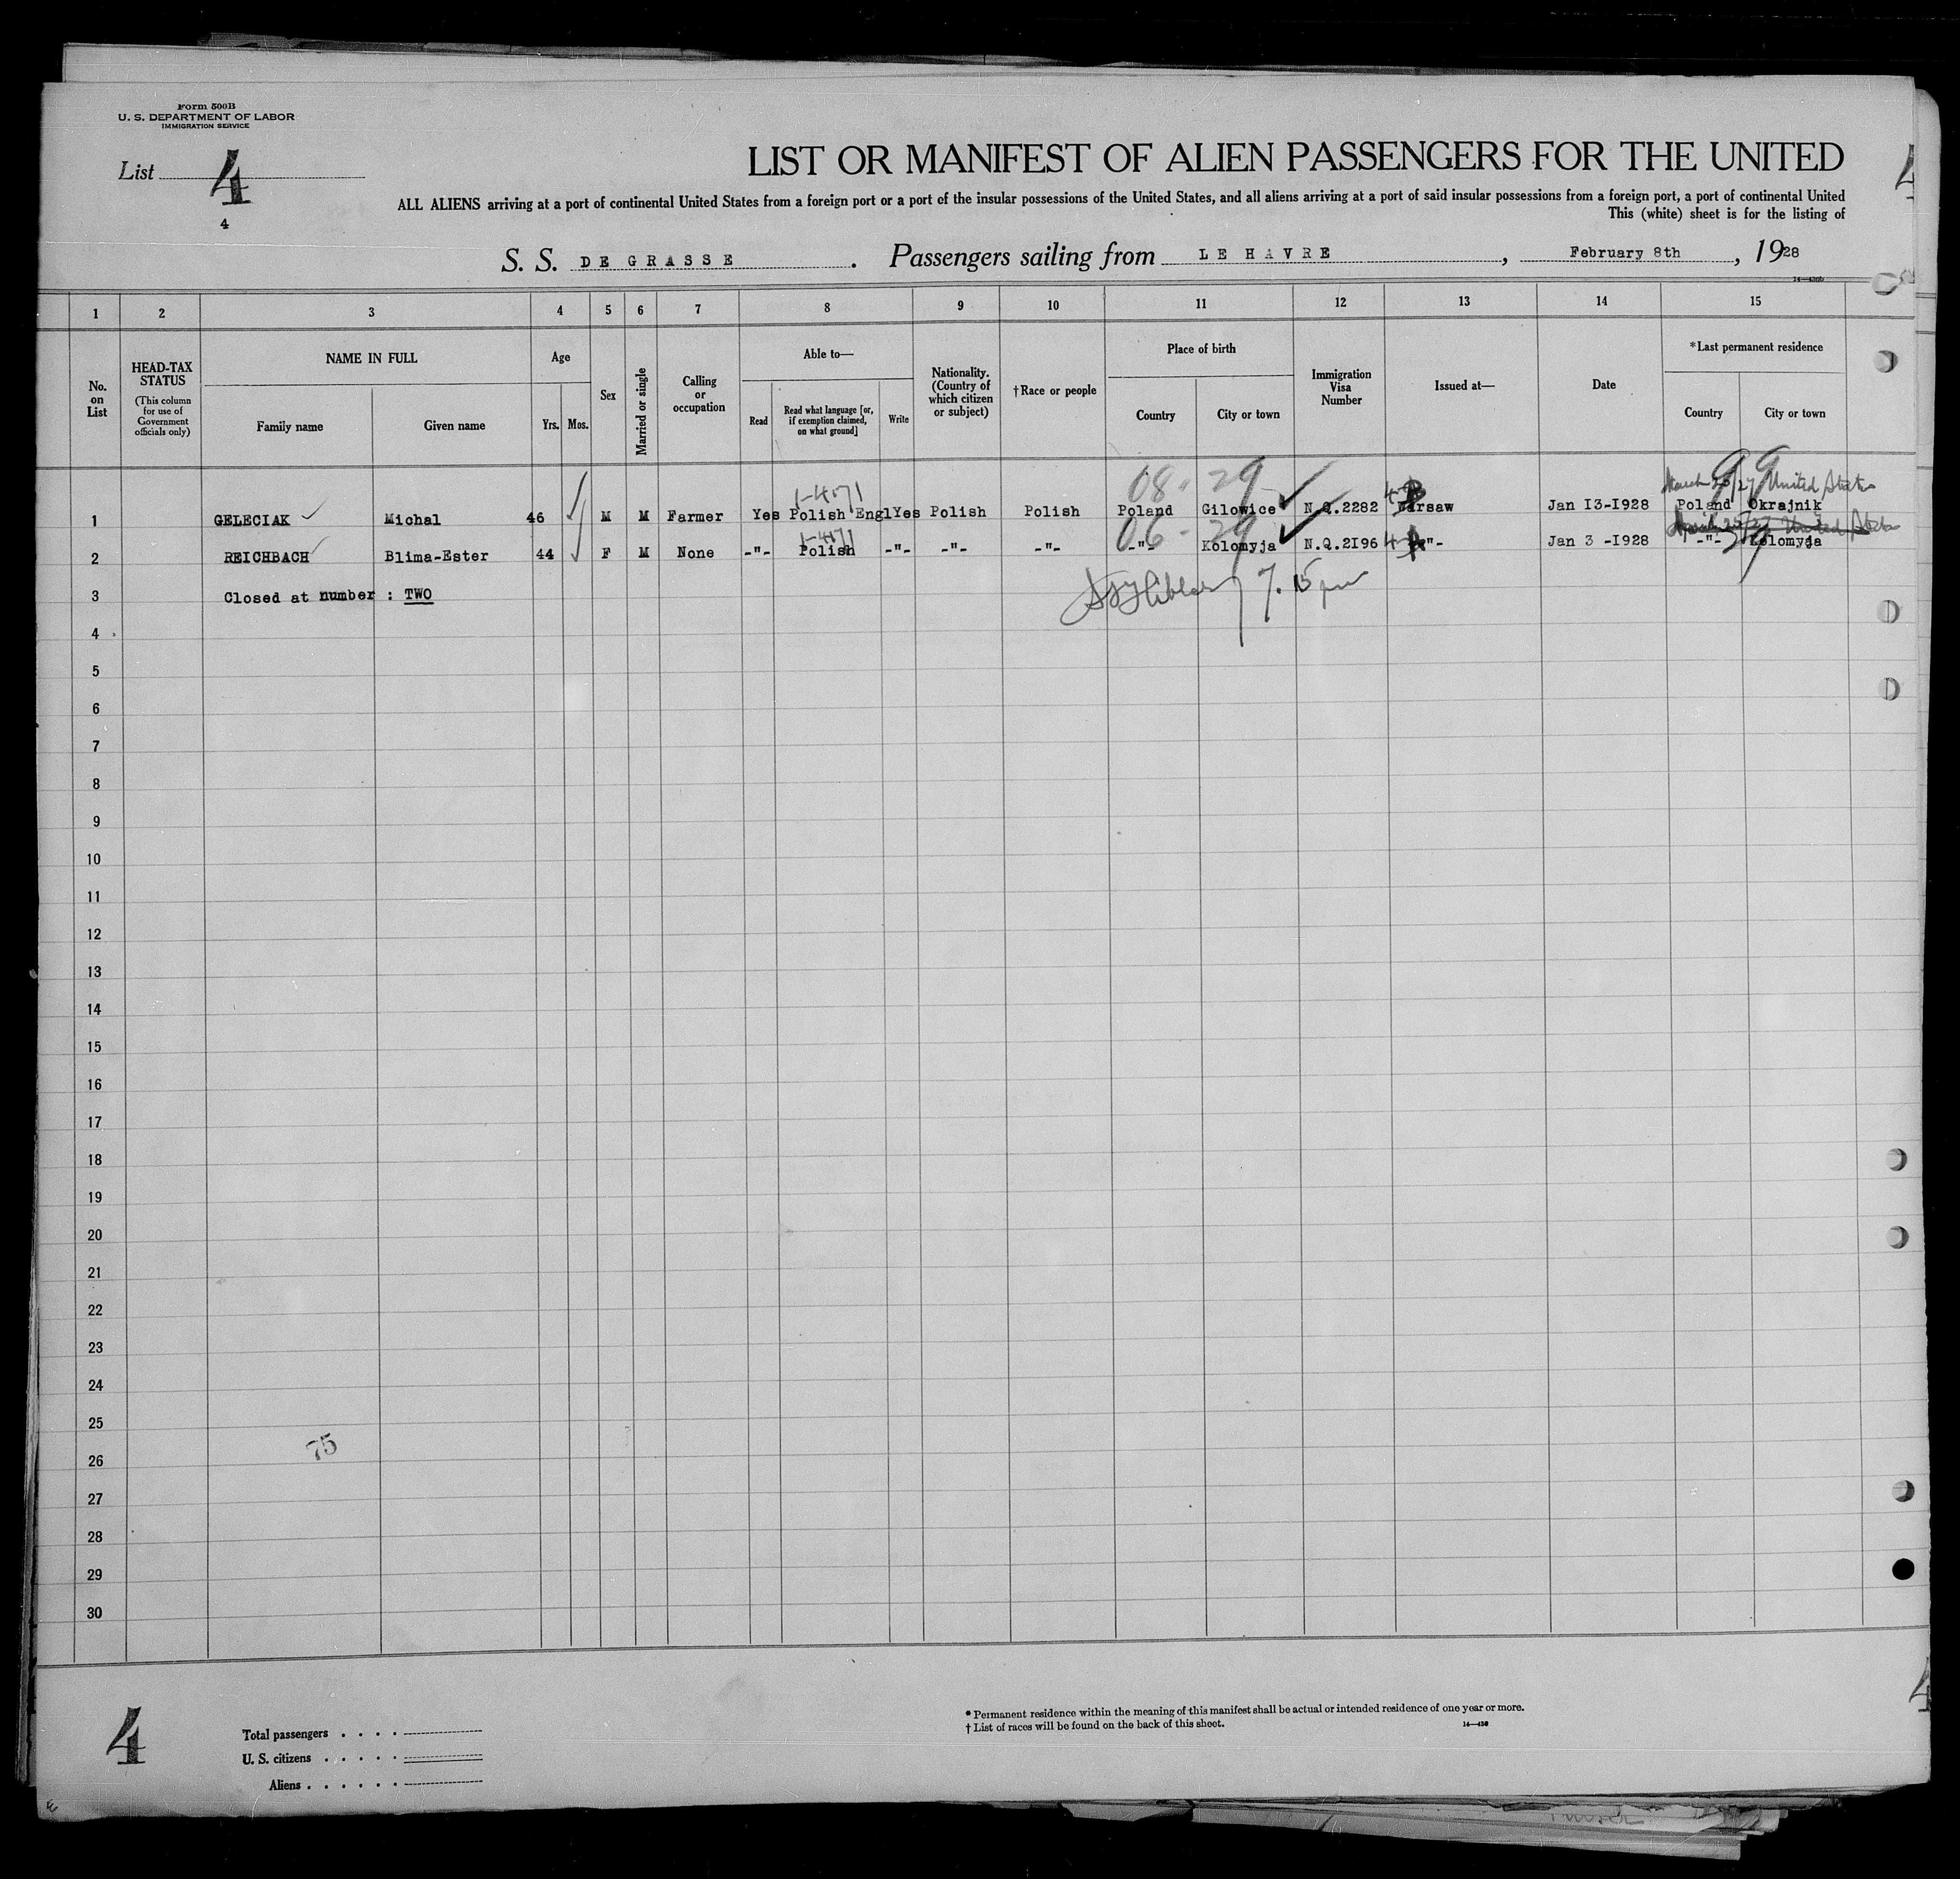 Form 500B
U. S. DEPARTMENT OF LABOR
IMMIGRATION SERVICE
List 4
4
LIST OR MANIFEST OF ALIEN PASSENGERS FOR THE UNITED
ALL ALIENS arriving at a port of continental United States from a foreign port or a port of the insular possessions of the United States, and all aliens arriving at a port of said insular possessions from a foreign port, a port of continental United
This (white) sheet is for the listing of
S. S. DE GRASSE . Passengers sailing from LE HAVRE , February 8th , 1928
1 2 3 4 5 6 7 8 9 10 11 12 13 14 15
No. on List
HEAD-TAX STATUS
(This column for use of Government officials only)
NAME IN FULL
Family name Given name
Age
Yrs. Mos.
Sex
Married or single
Calling or occupation
Able to—
Read
Read what language [or, if exemption claimed, on what ground]
Write
Nationality. (Country of which citizen or subject)
†Race or people
Place of birth
Country City or town
Immigration Visa Number
Issued at—
Date
*Last permanent residence
Country City or town
1-4071 08- 29 March 27 United States
1 GELECIAK Michal 46 M M Farmer Yes Polish Engl Yes Polish Polish Poland Gilowice N.Q.2282 Warsaw Jan I3-I928 Poland Okrajnik
1-4071 06- 29 United States
2 REICHBACH Blima-Ester 44 F M None -"- Polish -"- -"- -"- -"- Kolomyja N.Q.2I96 -"- Jan 3 -I928 -"- Kolomyja
3 Closed at number : TWO 7.15 pm
4
5
6
7
8
9
10
11
12
13
14
15
16
17
18
19
20
21
22
23
24
25
75
26
27
28
29
30
4
Total passengers . . . .
U. S. citizens . . . . .
Aliens . . . . . .
* Permanent residence within the meaning of this manifest shall be actual or intended residence of one year or more.
† List of races will be found on the back of this sheet.
14—430